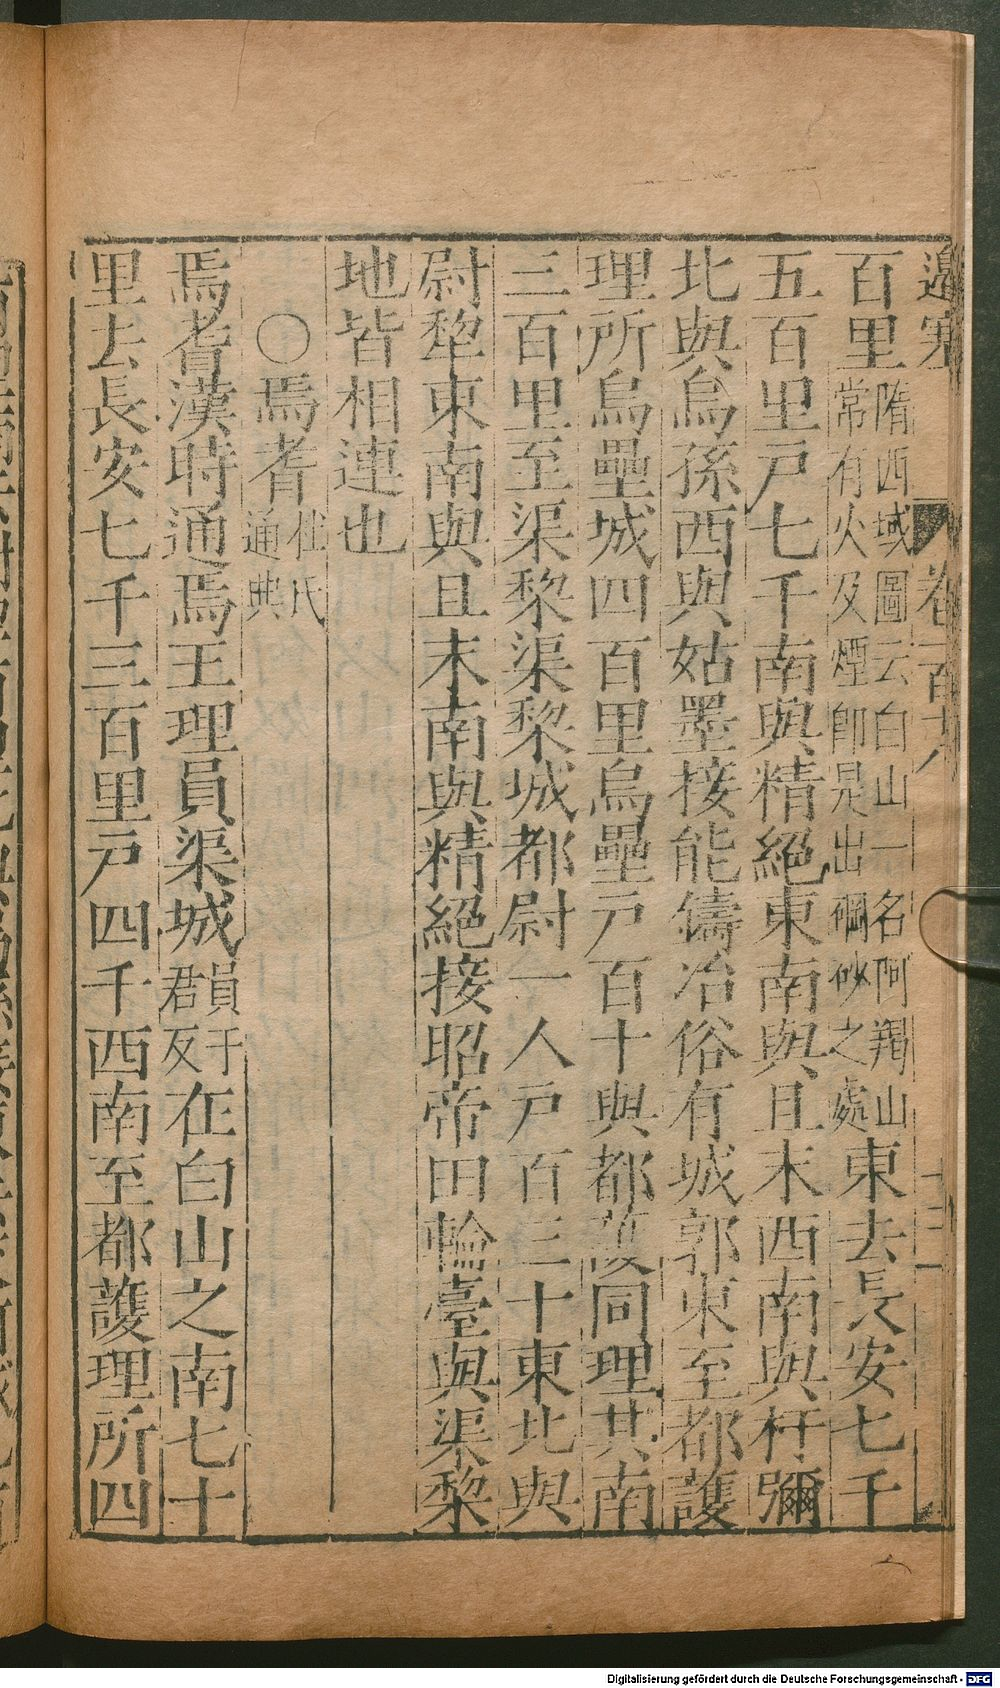 邊塞 卷一百十八 十三
百里隋西域圖云白山一名阿羯山常有火及煙即是出碙砂之處東去長安七千
五百里戸七千南與精絕東南與且末西南與杅彌
北與烏孫西與姑墨接能鑄冶俗有城郭東至都護
理所烏壘城四百里烏壘戸百十與都護同理其南
三百里至渠黎渠黎城都尉一人戸百三十東北與
尉犂東南與且末南與精絕接昭帝田輪臺與渠黎
地皆相連也
○焉耆杜氏通典
焉耆漢時通焉王理員渠城員于君反在白山之南七十
里去長安七千三百里戸四千西南至都護理所四
Digitalisierung gefördert durch die Deutsche Forschungsgemeinschaft - DFG